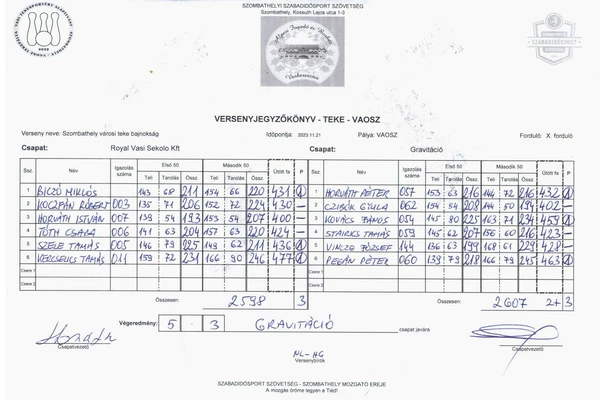 SZOMBATHELYI SZABADIDŐSPORT SZÖVETSÉG
Szombathely, Kossuth Lajos utca 1-3
SZABADIDŐSPORT
VERSENYJEGYZŐKÖNYV - TEKE - VAOSZ
Verseny neve: Szombathely városi teke bajnokság Időpontja: 2023.11.21 Pálya: VAOSZ Forduló: X. forduló
Csapat: Royal Vasi Sekolo Kft Csapat: Gravitáció
Ssz. Név Igazolás száma Első 50 Második 50 Ütött fa P Ssz. Név Igazolás száma Első 50 Második 50 Ütött fa P
Teli Tarolás Össz. Teli Tarolás Össz. Teli Tarolás Össz. Teli Tarolás Össz.
1 BICZÓ MIKLÓS 143 68 211 154 66 220 431 1 1 HORVÁTH PÉTER 057 153 63 216 144 72 216 432 1
2 KOCZPÁN RÓBERT 003 135 71 206 152 72 224 430 — 2 CZIBÓK GYULA 062 154 54 208 144 50 194 402 —
3 HORVÁTH ISTVÁN 007 139 54 193 154 53 207 400 — 3 KOVÁCS JÁNOS 054 145 80 225 163 71 234 459 1
4 TÓTH CSABA 006 141 63 204 157 63 220 424 — 4 TAMÁS 059 145 62 207 156 60 216 423 —
5 SZELE TAMÁS 005 146 79 225 149 62 211 436 1 5 VINCZE JÓZSEF 144 136 63 199 168 61 229 428 —
6 KERCSELICS TAMÁS 011 159 72 231 166 90 246 477 1 6 PEGÁN PÉTER 060 139 79 218 166 79 245 463 1
Csere 1 Csere 1
Csere 2 Csere 2
Összesen: 2598 3 Összesen: 2607 2+3
Végeredmény: 5 - 3 GRAVITÁCIÓ csapat javára
Csapatvezető Csapatvezető
NL-HG
Versenybírók
SZABADIDŐSPORT SZÖVETSÉG - SZOMBATHELY MOZGATÓ EREJE
A mozgás öröme legyen a Tiéd!